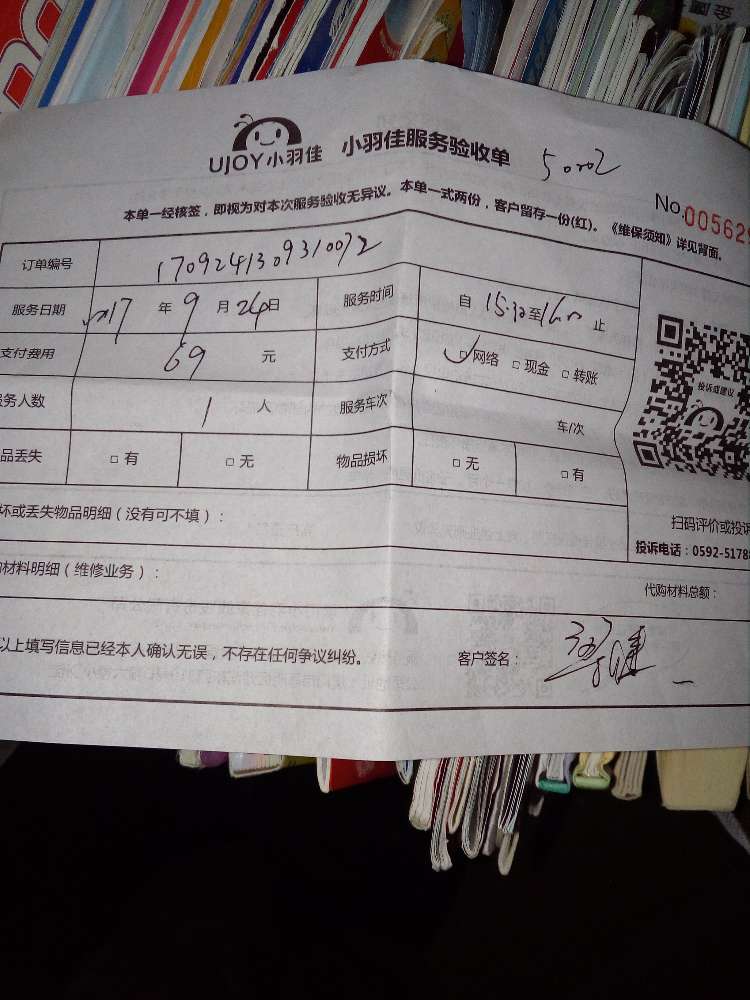 UJOY小羽佳 小羽佳服务验收单 5002
No.005629
本单一经核签，即视为对本次服务验收无异议。本单一式两份，客户留存一份(红)。《维保须知》详见背面。
订单编号 1709241309310072
服务日期 2017 年 9 月 24 日 服务时间 自 15:30 至 止
支付费用 69 元 支付方式 ☑网络 □现金 □转账
务人数 1 人 服务车次 车/次
品丢失 □有 □无 物品损坏 □无 □有
投诉或建议
坏或丢失物品明细（没有可不填）：
扫码评价或投诉
投诉电话：0592-5178
材料明细（维修业务）： 代购材料总额：
以上填写信息已经本人确认无误，不存在任何争议纠纷。 客户签名：